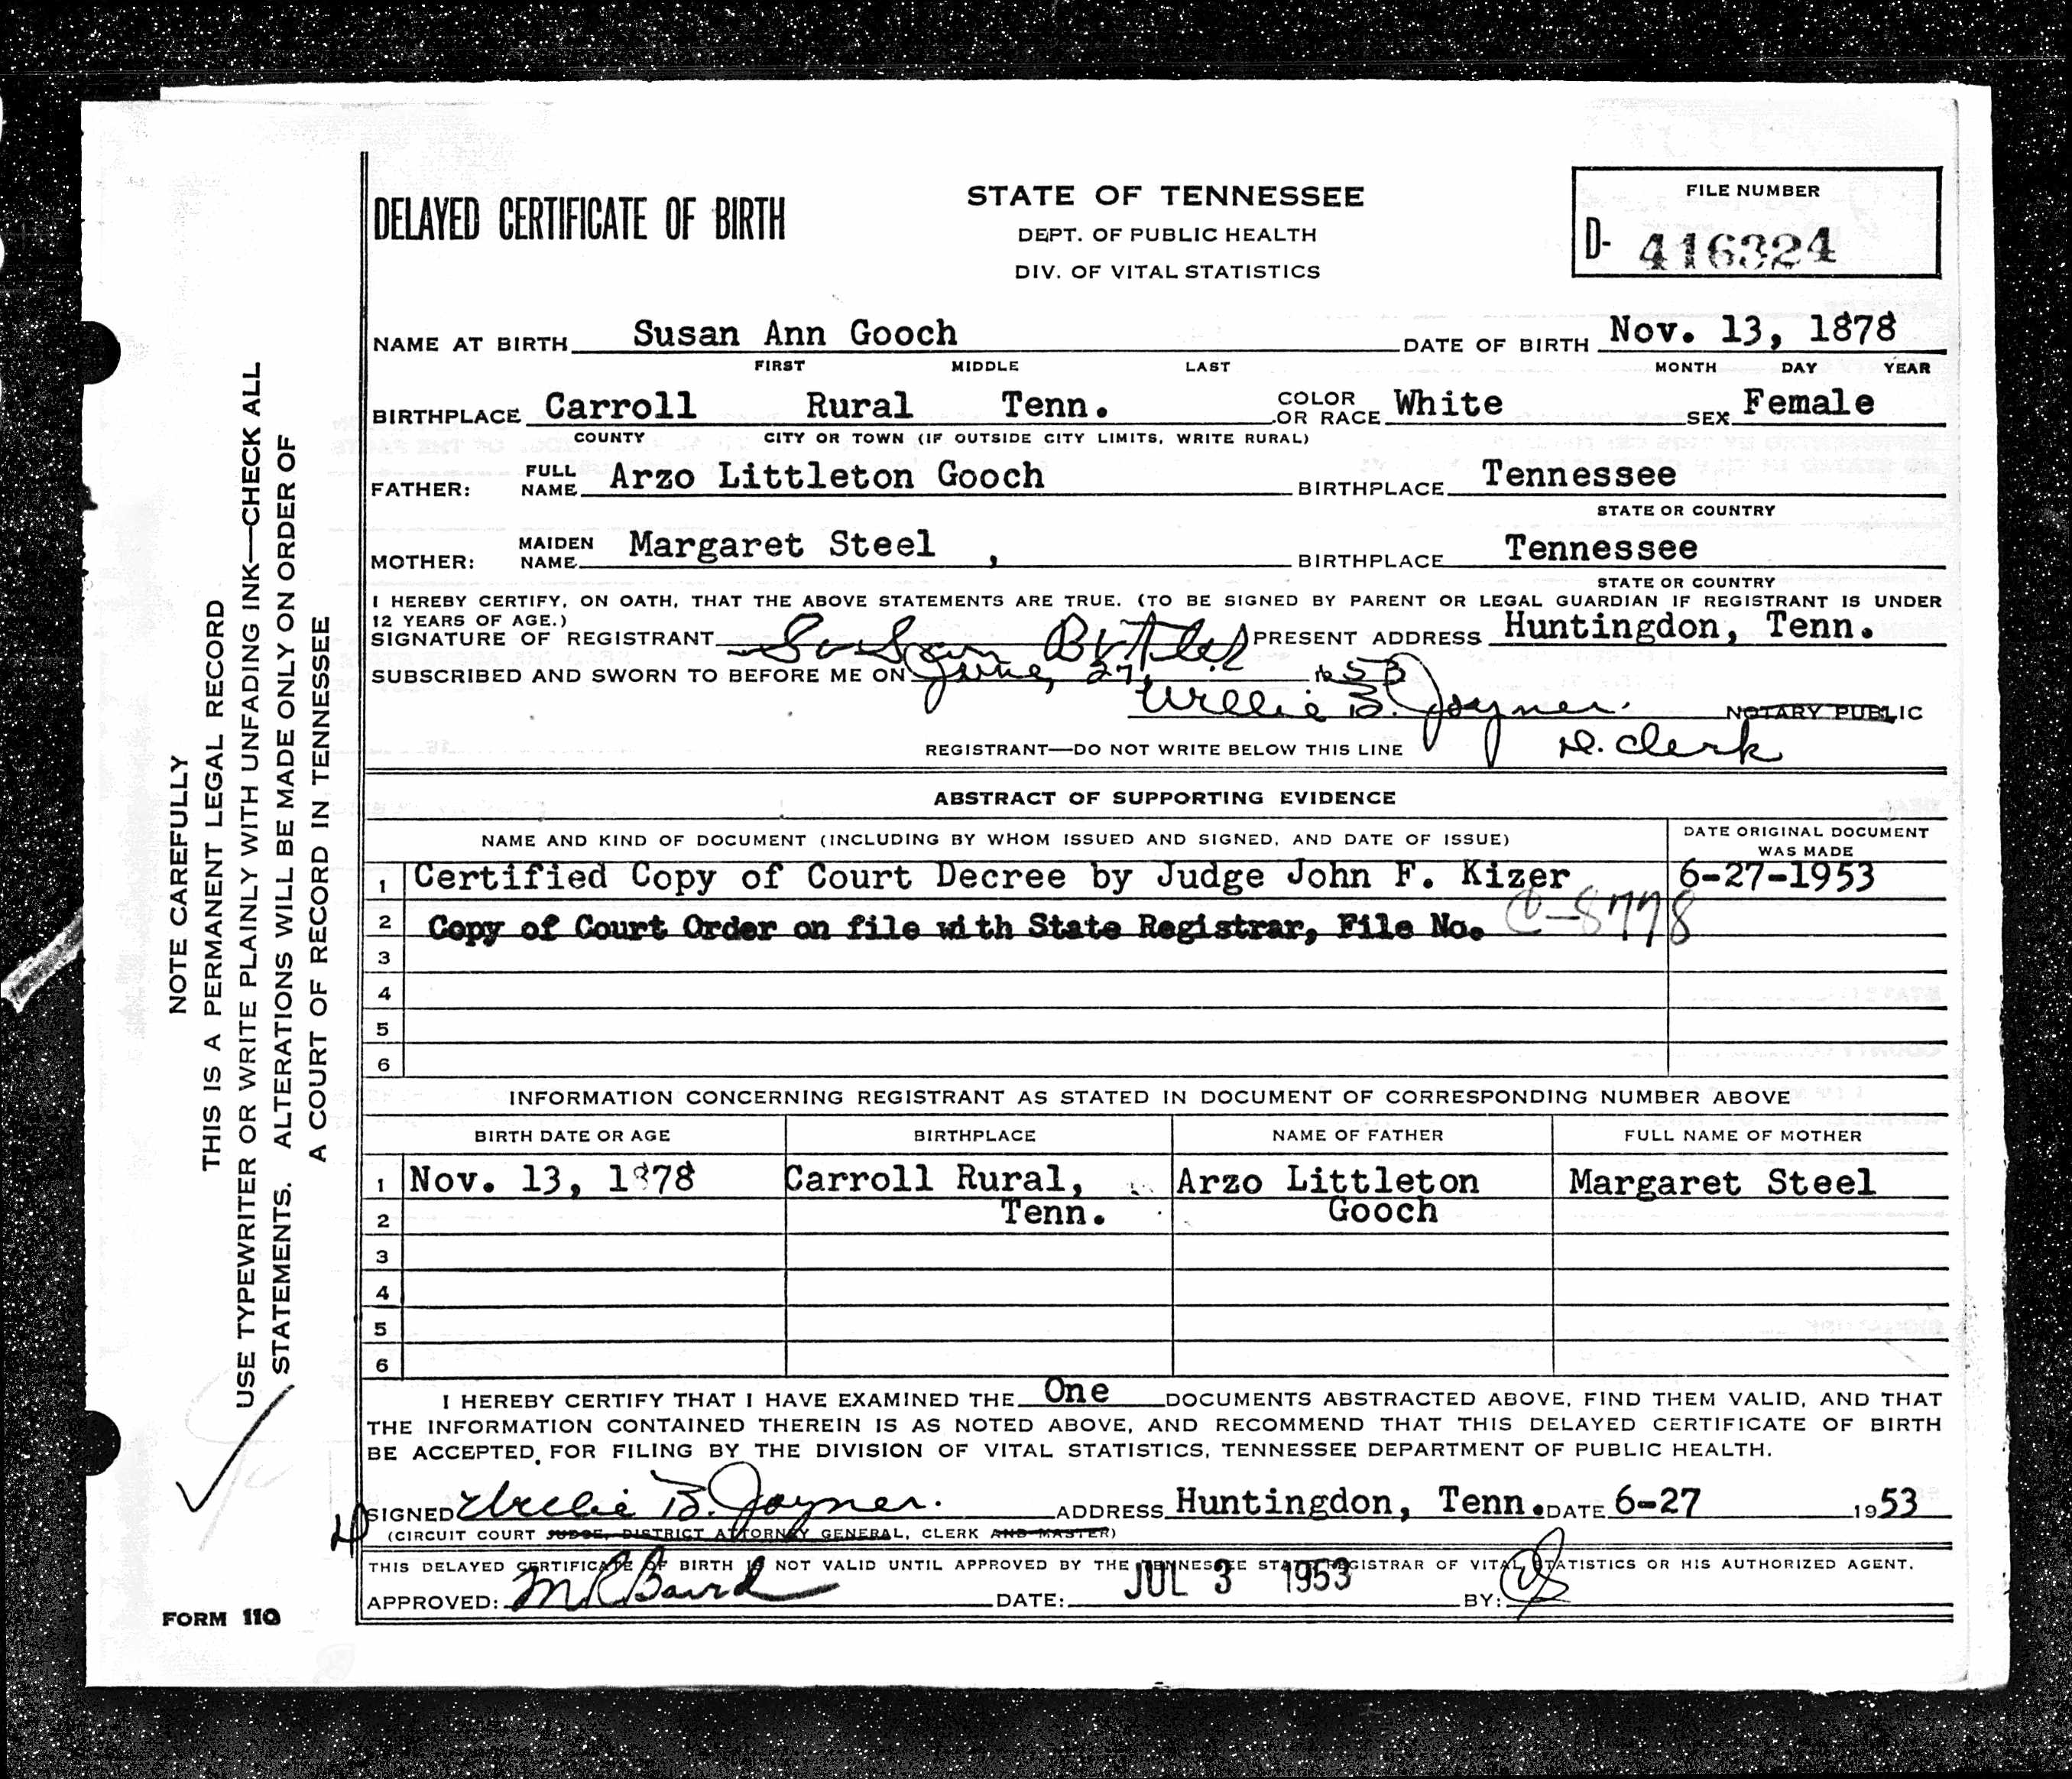 DELAYED CERTIFICATE OF BIRTH
STATE OF TENNESSEE
DEPT. OF PUBLIC HEALTH
DIV. OF VITAL STATISTICS
FILE NUMBER
D- 416324
NAME AT BIRTH Susan Ann Gooch DATE OF BIRTH Nov. 13, 1878
FIRST MIDDLE LAST MONTH DAY YEAR
BIRTHPLACE Carroll Rural Tenn. COLOR OR RACE White SEX Female
COUNTY CITY OR TOWN (IF OUTSIDE CITY LIMITS, WRITE RURAL)
FATHER: FULL NAME Arzo Littleton Gooch BIRTHPLACE Tennessee
STATE OR COUNTRY
MOTHER: MAIDEN NAME Margaret Steel , BIRTHPLACE Tennessee
STATE OR COUNTRY
I HEREBY CERTIFY, ON OATH, THAT THE ABOVE STATEMENTS ARE TRUE. (TO BE SIGNED BY PARENT OR LEGAL GUARDIAN IF REGISTRANT IS UNDER
12 YEARS OF AGE.)
SIGNATURE OF REGISTRANT Susan Butler PRESENT ADDRESS Huntingdon, Tenn.
SUBSCRIBED AND SWORN TO BEFORE ME ON June, 27, 1953
Willie B. Joyner. NOTARY PUBLIC
REGISTRANT—DO NOT WRITE BELOW THIS LINE D. Clerk
ABSTRACT OF SUPPORTING EVIDENCE
NAME AND KIND OF DOCUMENT (INCLUDING BY WHOM ISSUED AND SIGNED, AND DATE OF ISSUE) DATE ORIGINAL DOCUMENT WAS MADE
1 Certified Copy of Court Decree by Judge John F. Kizer 6-27-1953
2 Copy of Court Order on file with State Registrar, File No. C-8778
3
4
5
6
INFORMATION CONCERNING REGISTRANT AS STATED IN DOCUMENT OF CORRESPONDING NUMBER ABOVE
BIRTH DATE OR AGE BIRTHPLACE NAME OF FATHER FULL NAME OF MOTHER
1 Nov. 13, 1878 Carroll Rural, Arzo Littleton Margaret Steel
2 Tenn. Gooch
3
4
5
6
I HEREBY CERTIFY THAT I HAVE EXAMINED THE One DOCUMENTS ABSTRACTED ABOVE, FIND THEM VALID, AND THAT
THE INFORMATION CONTAINED THEREIN IS AS NOTED ABOVE, AND RECOMMEND THAT THIS DELAYED CERTIFICATE OF BIRTH
BE ACCEPTED FOR FILING BY THE DIVISION OF VITAL STATISTICS, TENNESSEE DEPARTMENT OF PUBLIC HEALTH.
SIGNED Willie B. Joyner. ADDRESS Huntingdon, Tenn. DATE 6-27 1953
(CIRCUIT COURT JUDGE, DISTRICT ATTORNEY GENERAL, CLERK AND MASTER)
THIS DELAYED CERTIFICATE OF BIRTH IS NOT VALID UNTIL APPROVED BY THE TENNESSEE STATE REGISTRAR OF VITAL STATISTICS OR HIS AUTHORIZED AGENT.
APPROVED: M R Baird DATE: JUL 3 1953 BY:
FORM 110
NOTE CAREFULLY
THIS IS A PERMANENT LEGAL RECORD
USE TYPEWRITER OR WRITE PLAINLY WITH UNFADING INK—CHECK ALL
STATEMENTS. ALTERATIONS WILL BE MADE ONLY ON ORDER OF
A COURT OF RECORD IN TENNESSEE